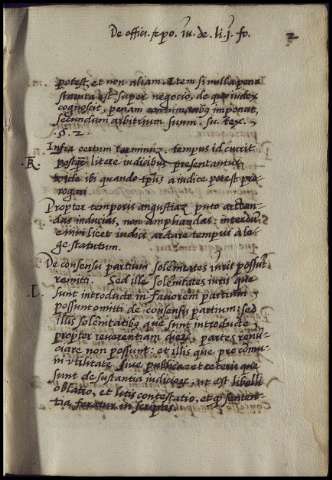 De offi. et po. iu. de. li. j. fo. 2
potest, et non aliam. Item si nulla pena
statuta est super negocio, de quo iudex
cognoscit, penam imponat,
secundum arbitrium suum. su. eze.
§. 2.
Infra certum terminum, tempus id currit
R. postquam literae iudicibus presentantur
ibi quando tempus a iudice potest pro
rogari
Propter temporis angustiam puto arctan
das inducias, non ampliandas: interdum
enim licet iudici arctare tempus a le
ge statutum.
De consensu partium solemnitates iuris possunt
remitti. Sed ille solemnitates iuris que
D. sunt introducte in favorem partium
possunt omitti de consensu partium: sed
illis solemnitatibus que sunt introducte
propter reverentiam iudicis, partes renun
ciare non possunt: et illis que pro commu
ni utilitate sive publica: et ceteris que
sunt de sustantia iudicii, ut est libelli
oblatio, et litis contestatio, et quod senten
tia, feratur in scriptis.